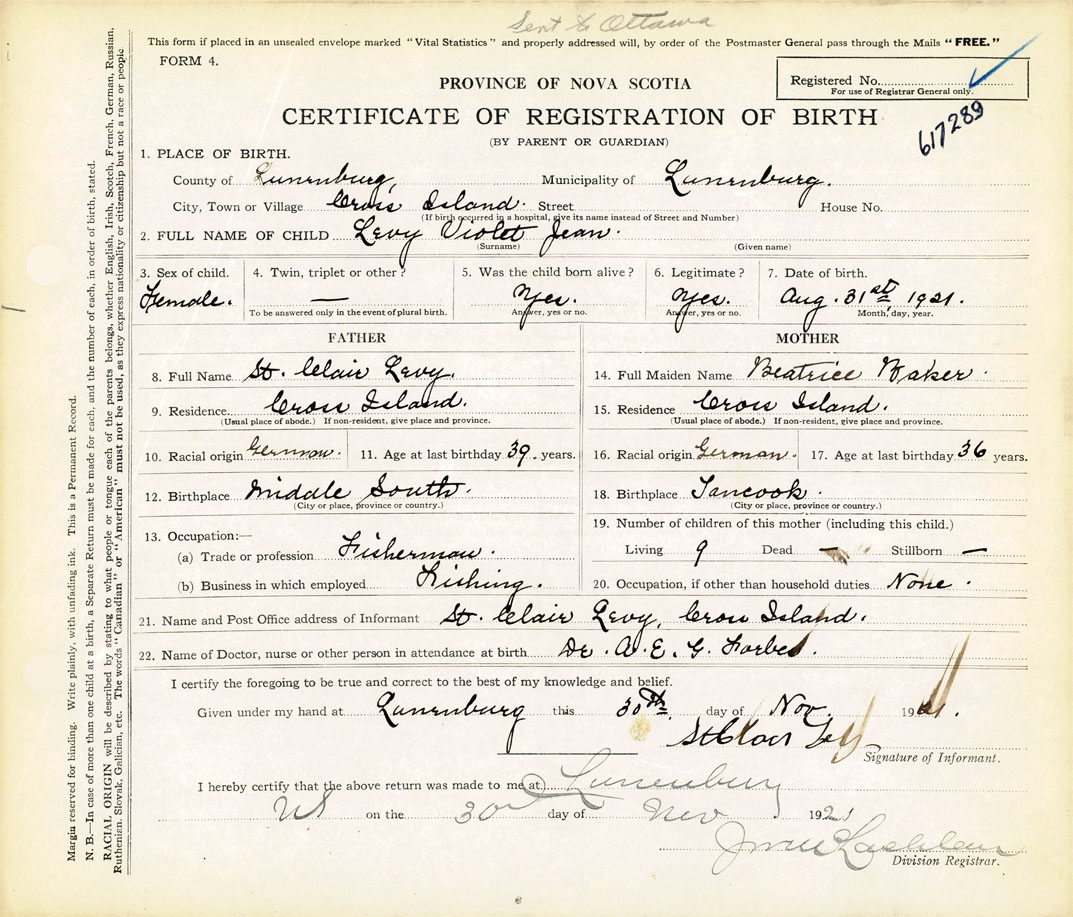 Sent to Ottawa
This form if placed in an unsealed envelope marked "Vital Statistics" and properly addressed will, by order of the Postmaster General pass through the Mails "FREE."
FORM 4.
Registered No.
For use of Registrar General only.
617289
PROVINCE OF NOVA SCOTIA
CERTIFICATE OF REGISTRATION OF BIRTH
(BY PARENT OR GUARDIAN)
1. PLACE OF BIRTH.
County of Lunenburg, Municipality of Lunenburg.
City, Town or Village Cross Island. Street House No.
(If birth occurred in a hospital, give its name instead of Street and Number)
2. FULL NAME OF CHILD Levy Violet Jean.
(Surname) (Given name)
3. Sex of child. 4. Twin, triplet or other? 5. Was the child born alive? 6. Legitimate? 7. Date of birth.
Female. — Yes. Yes. Aug. 31st, 1921.
To be answered only in the event of plural birth. Answer, yes or no. Answer, yes or no. Month, day, year.
FATHER
8. Full Name St. Clair Levy.
9. Residence Cross Island.
(Usual place of abode.) If non-resident, give place and province.
10. Racial origin German. 11. Age at last birthday 39. years.
12. Birthplace Middle South.
(City or place, province or country.)
13. Occupation:—
(a) Trade or profession Fisherman.
(b) Business in which employed Fishing.
MOTHER
14. Full Maiden Name Beatrice Baker.
15. Residence Cross Island.
(Usual place of abode.) If non-resident, give place and province.
16. Racial origin German. 17. Age at last birthday 36 years.
18. Birthplace Tancook.
(City or place, province or country.)
19. Number of children of this mother (including this child.)
Living 9 Dead — Stillborn —
20. Occupation, if other than household duties None.
21. Name and Post Office address of Informant St. Clair Levy, Cross Island.
22. Name of Doctor, nurse or other person in attendance at birth Dr. A. E. G. Forbes.
I certify the foregoing to be true and correct to the best of my knowledge and belief.
Given under my hand at Lunenburg this 30th. day of Nov. 1921.
St Clair Levy
Signature of Informant.
I hereby certify that the above return was made to me at Lunenburg
NS on the 30 day of Nov 1921
Division Registrar.
Margin reserved for binding. Write plainly, with unfading ink. This is a Permanent Record.
N. B.—In case of more than one child at a birth, a Separate Return must be made for each, and the number of each, in order of birth, stated.
RACIAL ORIGIN will be described by stating to what people or tongue each of the parents belongs, whether English, Irish, Scotch, French, German, Russian,
Ruthenian, Slovak, Galician, etc. The words "Canadian" or "American" must not be used, as they express nationality or citizenship but not a race or people